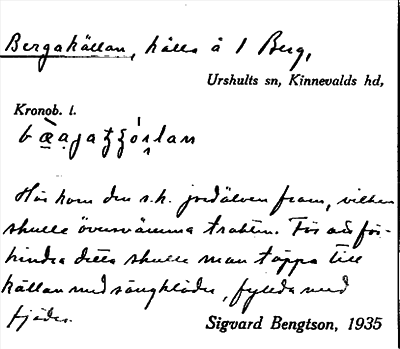 Bergakällan, källa å 1 Berg,
Urshults sn, Kinnevalds hd,
Kronob. l.
Här kom den s.k. jordälven fram, vilken
skulle översvämma trakten. För att för-
hindra detta skulle man täppa till
källan med sängkläder, fyllda med
fjäder.
Sigvard Bengtson, 1935